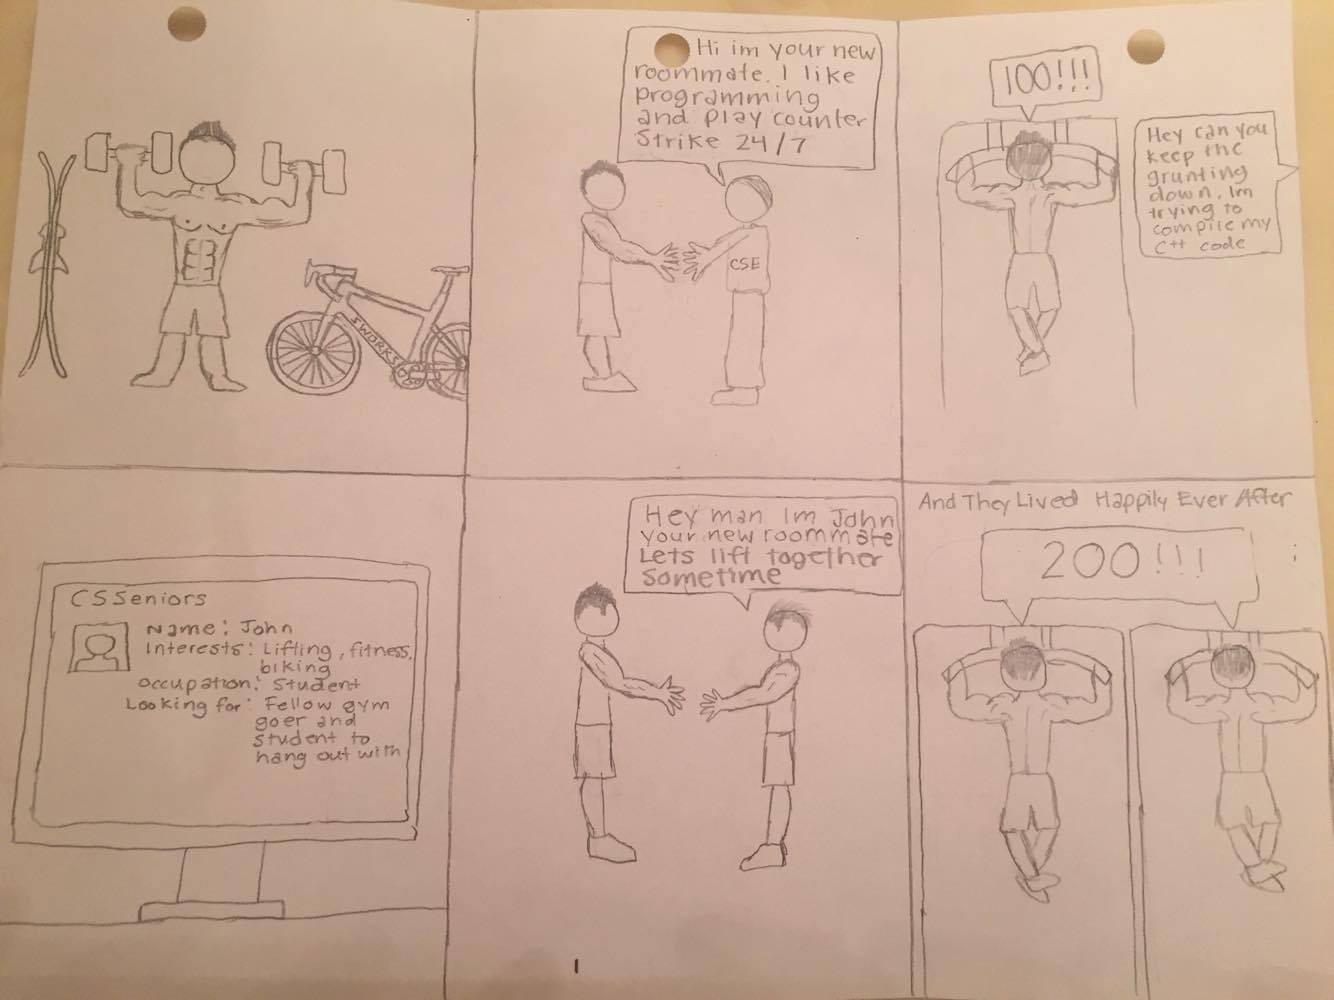 SWORKS
Hi im your new
roommate. I like
programming
and play counter
Strike 24/7
CSE
100!!!
Hey can you
keep the
grunting
down, Im
trying to
compile my
C++ code
CSSeniors
Name: John
Interests: Lifting, fitness,
biking
Occupation: Student
Looking for: Fellow gym
goer and
student to
hang out with
Hey man Im John
your new roommate
Lets lift together
sometime
And They Lived Happily Ever After
200!!!